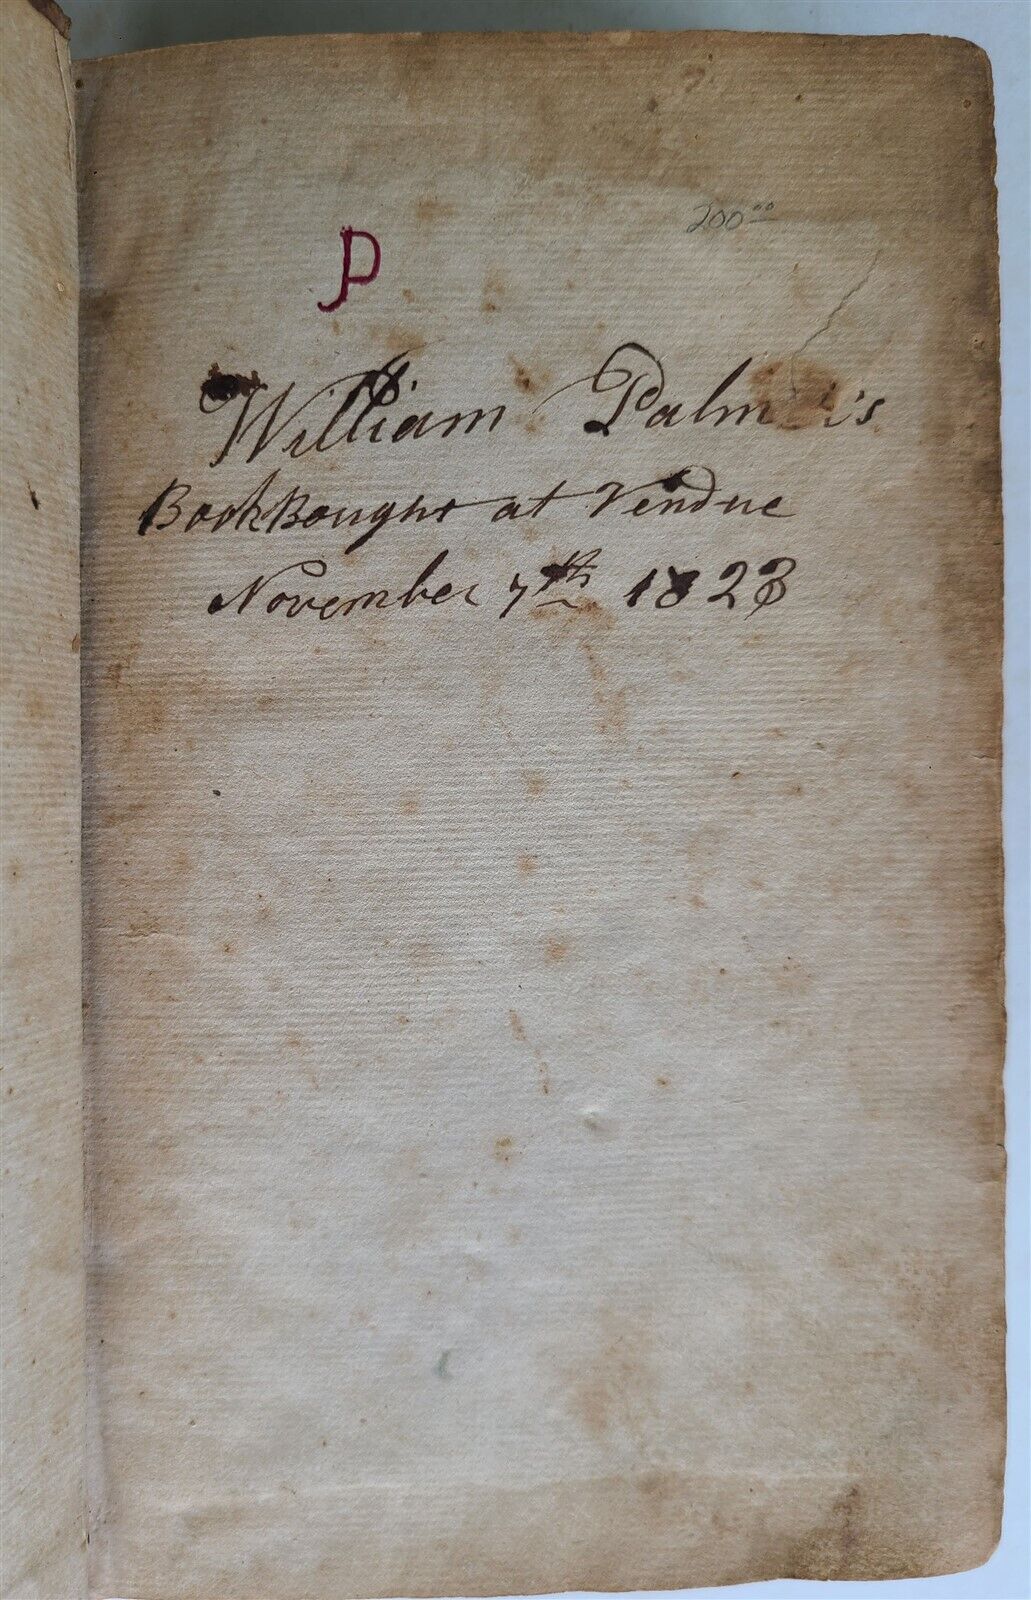 JP
200⁰⁰
William Palmer's
Book Bought at Vendue
November 7th 1823